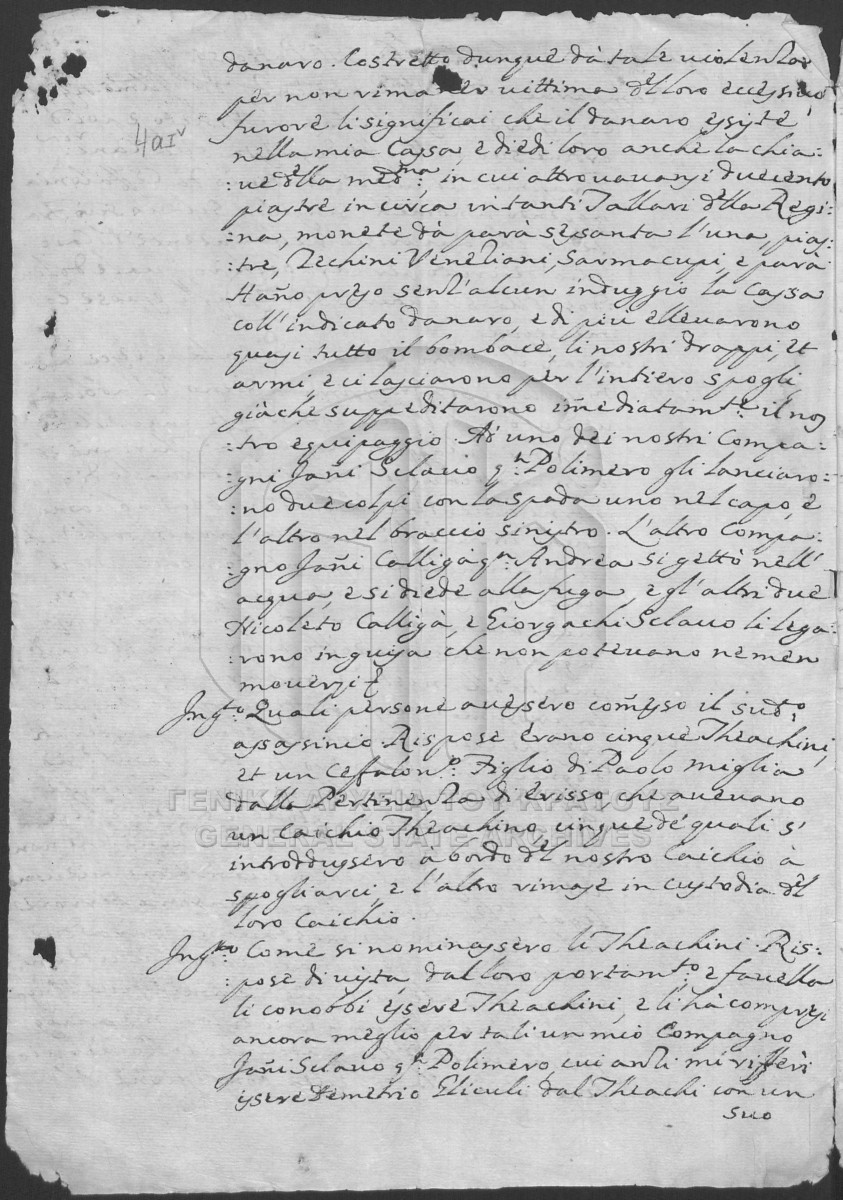 danaro. Costretto dunque dà tale uiolenza
per non rimaner uittima del loro eccessiuo
furore li significai che il danaro essiste
nella mia Cassa, e diedi loro anche la chia:
:ue della med:ma, in cui attrouauansi duecento
piastre in circa in tanti Tallari della Regi:
:na, monete dà parà sessanta l'una, pias:
:tre, Zechini Veneziani, Sarmacupi, e parà
Hano preso senz'alcun induggio la Cassa
coll'indicato danaro, e di più elleuarono
quasi tutto il bombace, li nostri drappi, et
armi, e ci lasciarono per l'intiero spogli
già che suppeditarono imediatamte. il nos
:tro equipaggio. Ad uno dei nostri Compa:
:gni Jañi Sclauo qm Polimero gli lanciaro:
:no due colpi con la spada uno nel capo, e
l'altro nel braccio sinistro. L'altro Compa:
:gno Jañi Calligà qm Andrea si gettò nell'
acqua, e si diede alla fuga, e gl'altri due
Nicoleto Calligà, e Giorgachi Sclauo li lega:
:rono in guisa che non poteuano ne men
mouersi
4a1v
Ingto. Quali persone auessero comesso il sudto.
assassinio. Rispose érano cinque Theachini,
et un Cefalono. Figlio di Paolo miglia
dalla Pertinenza di Erisso che aueuano
un Caichio Theachino, cinque de' quali s'
introdussero a bordo del nostro Caichio à
spogliarci, e l'altro rimase in custodia del
loro Caichio.
Ingto. Come si nominassero li Theachini. Ris:
:pose di uista, dal loro portamto., e fauella
li conobbi essere Theachini, e li hà compresi
ancora meglio per tali un mio Compagno
Jañi Sclauo qm Polimero, cui anzi mi rifferì
essere Demetrio Eliculi dal Theachi con un
suo
ΓΕΝΙΚΑ ΑΡΧΕΙΑ ΤΟΥ ΚΡΑΤΟΥΣ
GENERAL STATE ARCHIVES